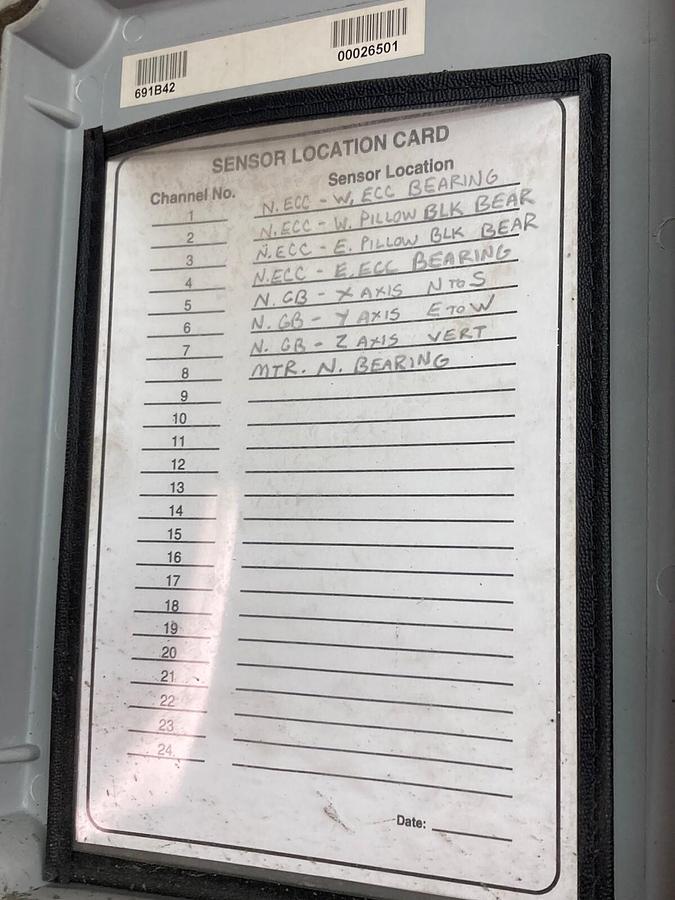 691B42
00026501
SENSOR LOCATION CARD
Channel No. Sensor Location
1 N. ECC - W. ECC BEARING
2 N. ECC - W. PILLOW BLK BEAR
3 N. ECC - E. PILLOW BLK BEAR
4 N. ECC - E. ECC BEARING
5 N. GB - X AXIS N TO S
6 N. GB - Y AXIS E TO W
7 N. GB - Z AXIS VERT
8 MTR. N. BEARING
9
10
11
12
13
14
15
16
17
18
19
20
21
22
23
24
Date: